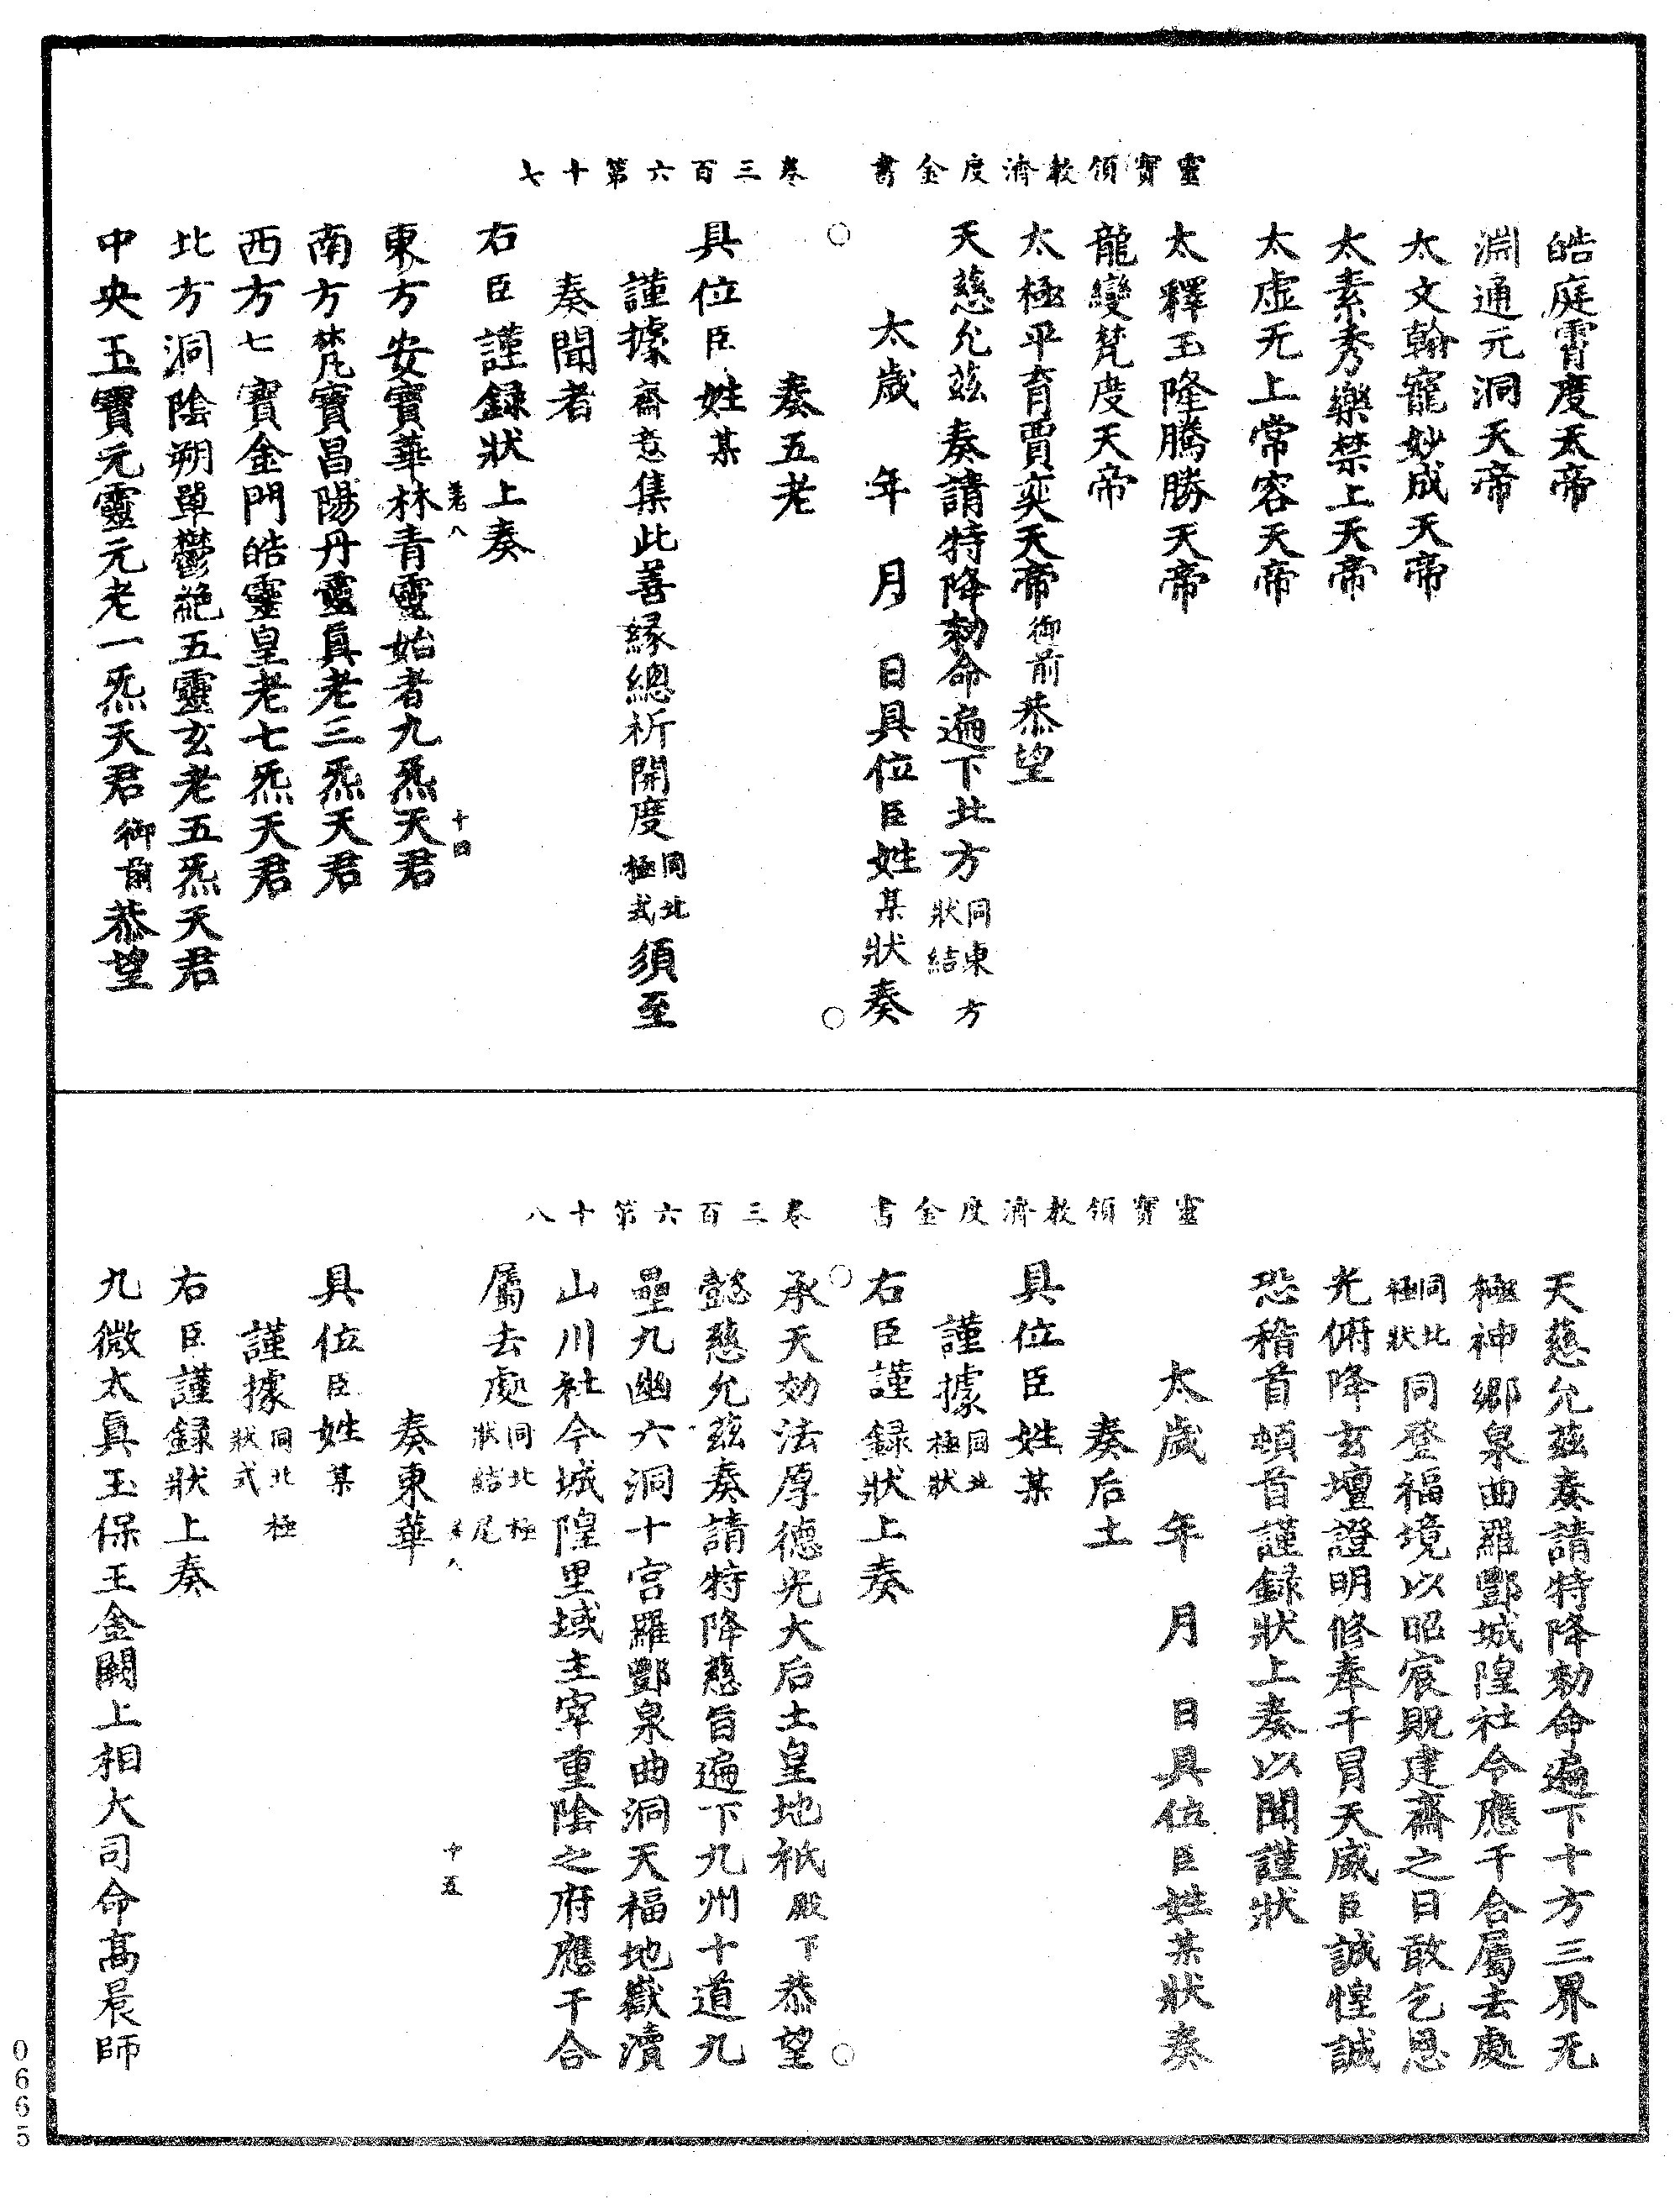 靈寶領教濟度金書　卷三百六第十七
皓庭霄度天帝
淵通元洞天帝
太文翰寵妙成天帝
太素秀樂禁上天帝
太虛无上常容天帝
太釋玉隆騰勝天帝
龍變梵度天帝
太極平育賈奕天帝御前恭望
天慈允茲奏請特降勑命遍下北方同東方狀結
太歲　年　月　日具位臣姓某狀奏
奏五老
具位臣姓某
謹據齋意集此善緣總祈開度同北極式須至
奏聞者
右臣謹録狀上奏
善八　十四
東方安寶華林青靈始老九炁天君
南方梵寶昌陽丹靈真老三炁天君
西方七寶金門皓靈皇老七炁天君
北方洞陰朔單鬱絶五靈玄老五炁天君
中央玉寶元靈元老一炁天君御前恭望
靈寶領教濟度金書　卷三百六第十八
天慈允茲奏請特降勑命遍下十方三界无
極神鄉泉曲羅酆城隍社令應干合屬去處
同北極狀同登福境以昭宸貺建齋之日敢乞恩
光俯降玄壇證明修奉干冐天威臣誠惶誠
恐稽首頓首謹録狀上奏以聞謹狀
太歲　年　月　日具位臣姓某狀奏
奏后土
具位臣姓某
謹據同北極狀
右臣謹録狀上奏
承天効法厚德光大后土皇地祇殿下恭望
懿慈允茲奏請特降慈旨遍下九州十道九
壘九幽六洞十宮羅酆泉曲洞天福地嶽瀆
山川社令城隍里域主宰重陰之府應干合
屬去處同北極狀結尾
善八　十五
奏東華
具位臣姓某
謹據同北極狀式
右臣謹録狀上奏
九微太真玉保王金闕上相大司命高晨師
0665